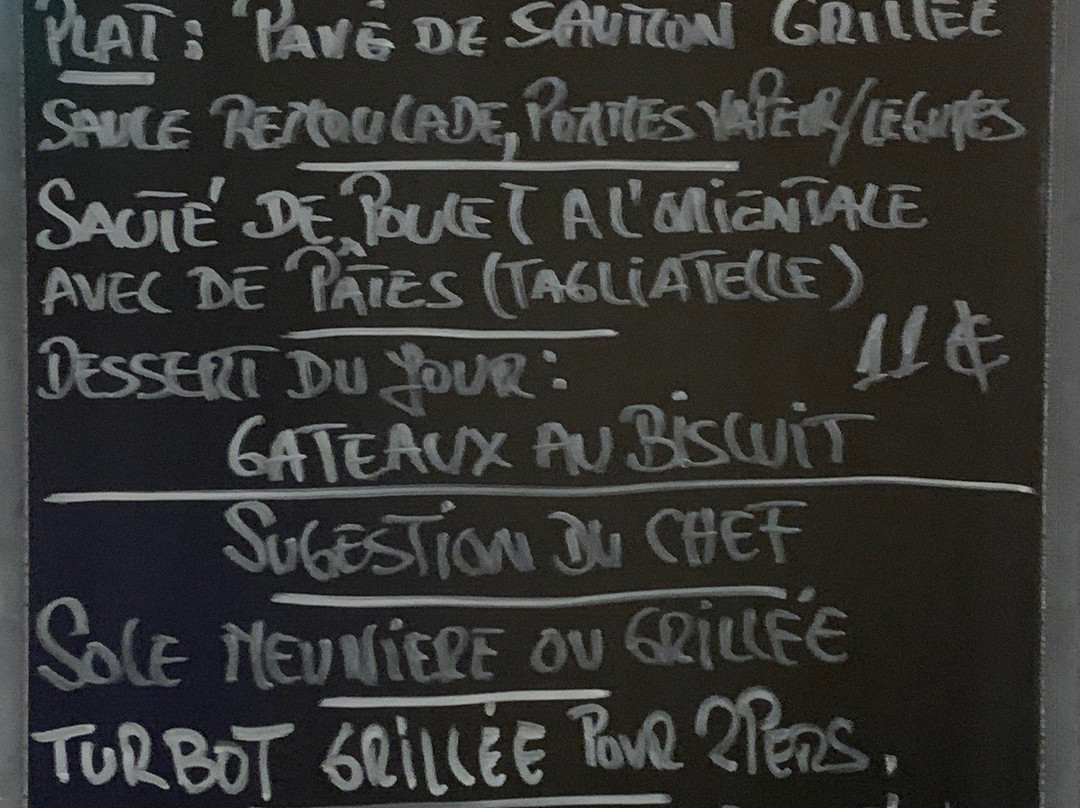 PLAT: PAVÉ DE SAUMON GRILLÉE
SAUCE REMOULADE, POMMES VAPEUR/LEGUMES
SAUTÉ DE POULET A L'ORIENTALE
AVEC DE PÂTES (TAGLIATELLE)
11 €
DESSERT DU JOUR:
GATEAUX AU BISCUIT
SUGESTION DU CHEF
SOLE MEUNIERE OU GRILLÉE
TURBOT GRILLÉE POUR 2 PERS.